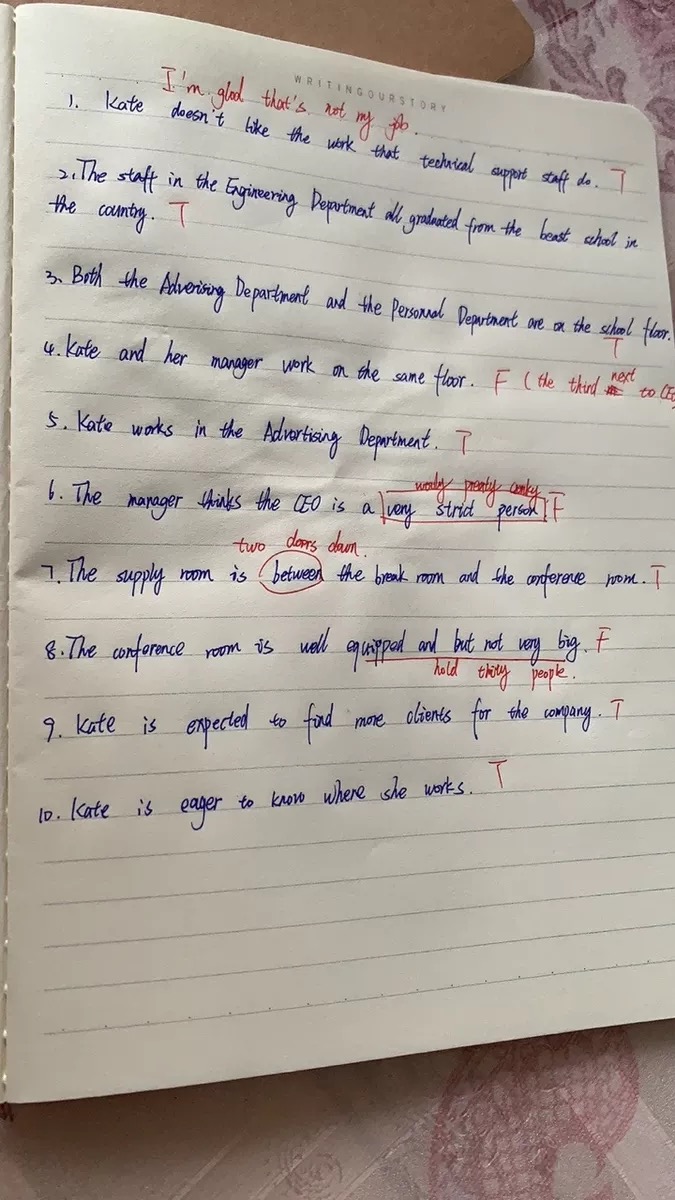 WRITINGOURSTORY
I'm glad that's not my job.
1. Kate doesn't like the work that technical support staff do. T
2. The staff in the Engineering Department all graduated from the beast school in
the country. T
3. Both the Adverising Department and the Personnal Department are on the school floor.
T
4. Kate and her manager work on the same floor. F (the third next to CEO
5. Kate works in the Advortising Department. T
preaty
6. The manager thinks the CEO is a very strict person F
two doors down.
7. The supply room is between the break room and the conference room. T
8. The conference room is well equipped and but not very big. F
hold thiry people.
9. Kate is expected to find more clients for the company. T
10. Kate is eager to know where she works. T